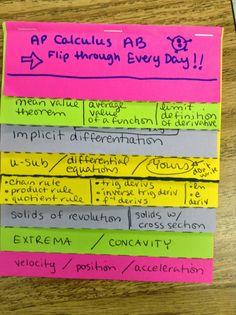 AP Calculus AB
Flip through Every Day!!
mean value theorem | average value of a function | limit definition of derivative
Implicit differentiation
u-sub / differential equations / (Yours)
• chain rule • trig derivs • ln
• product rule • inverse trig deriv • e
• quotient rule • f⁻¹ deriv deriv
solids of revolution | solids w/ cross section
EXTREMA / CONCAVITY
velocity / position / acceleration